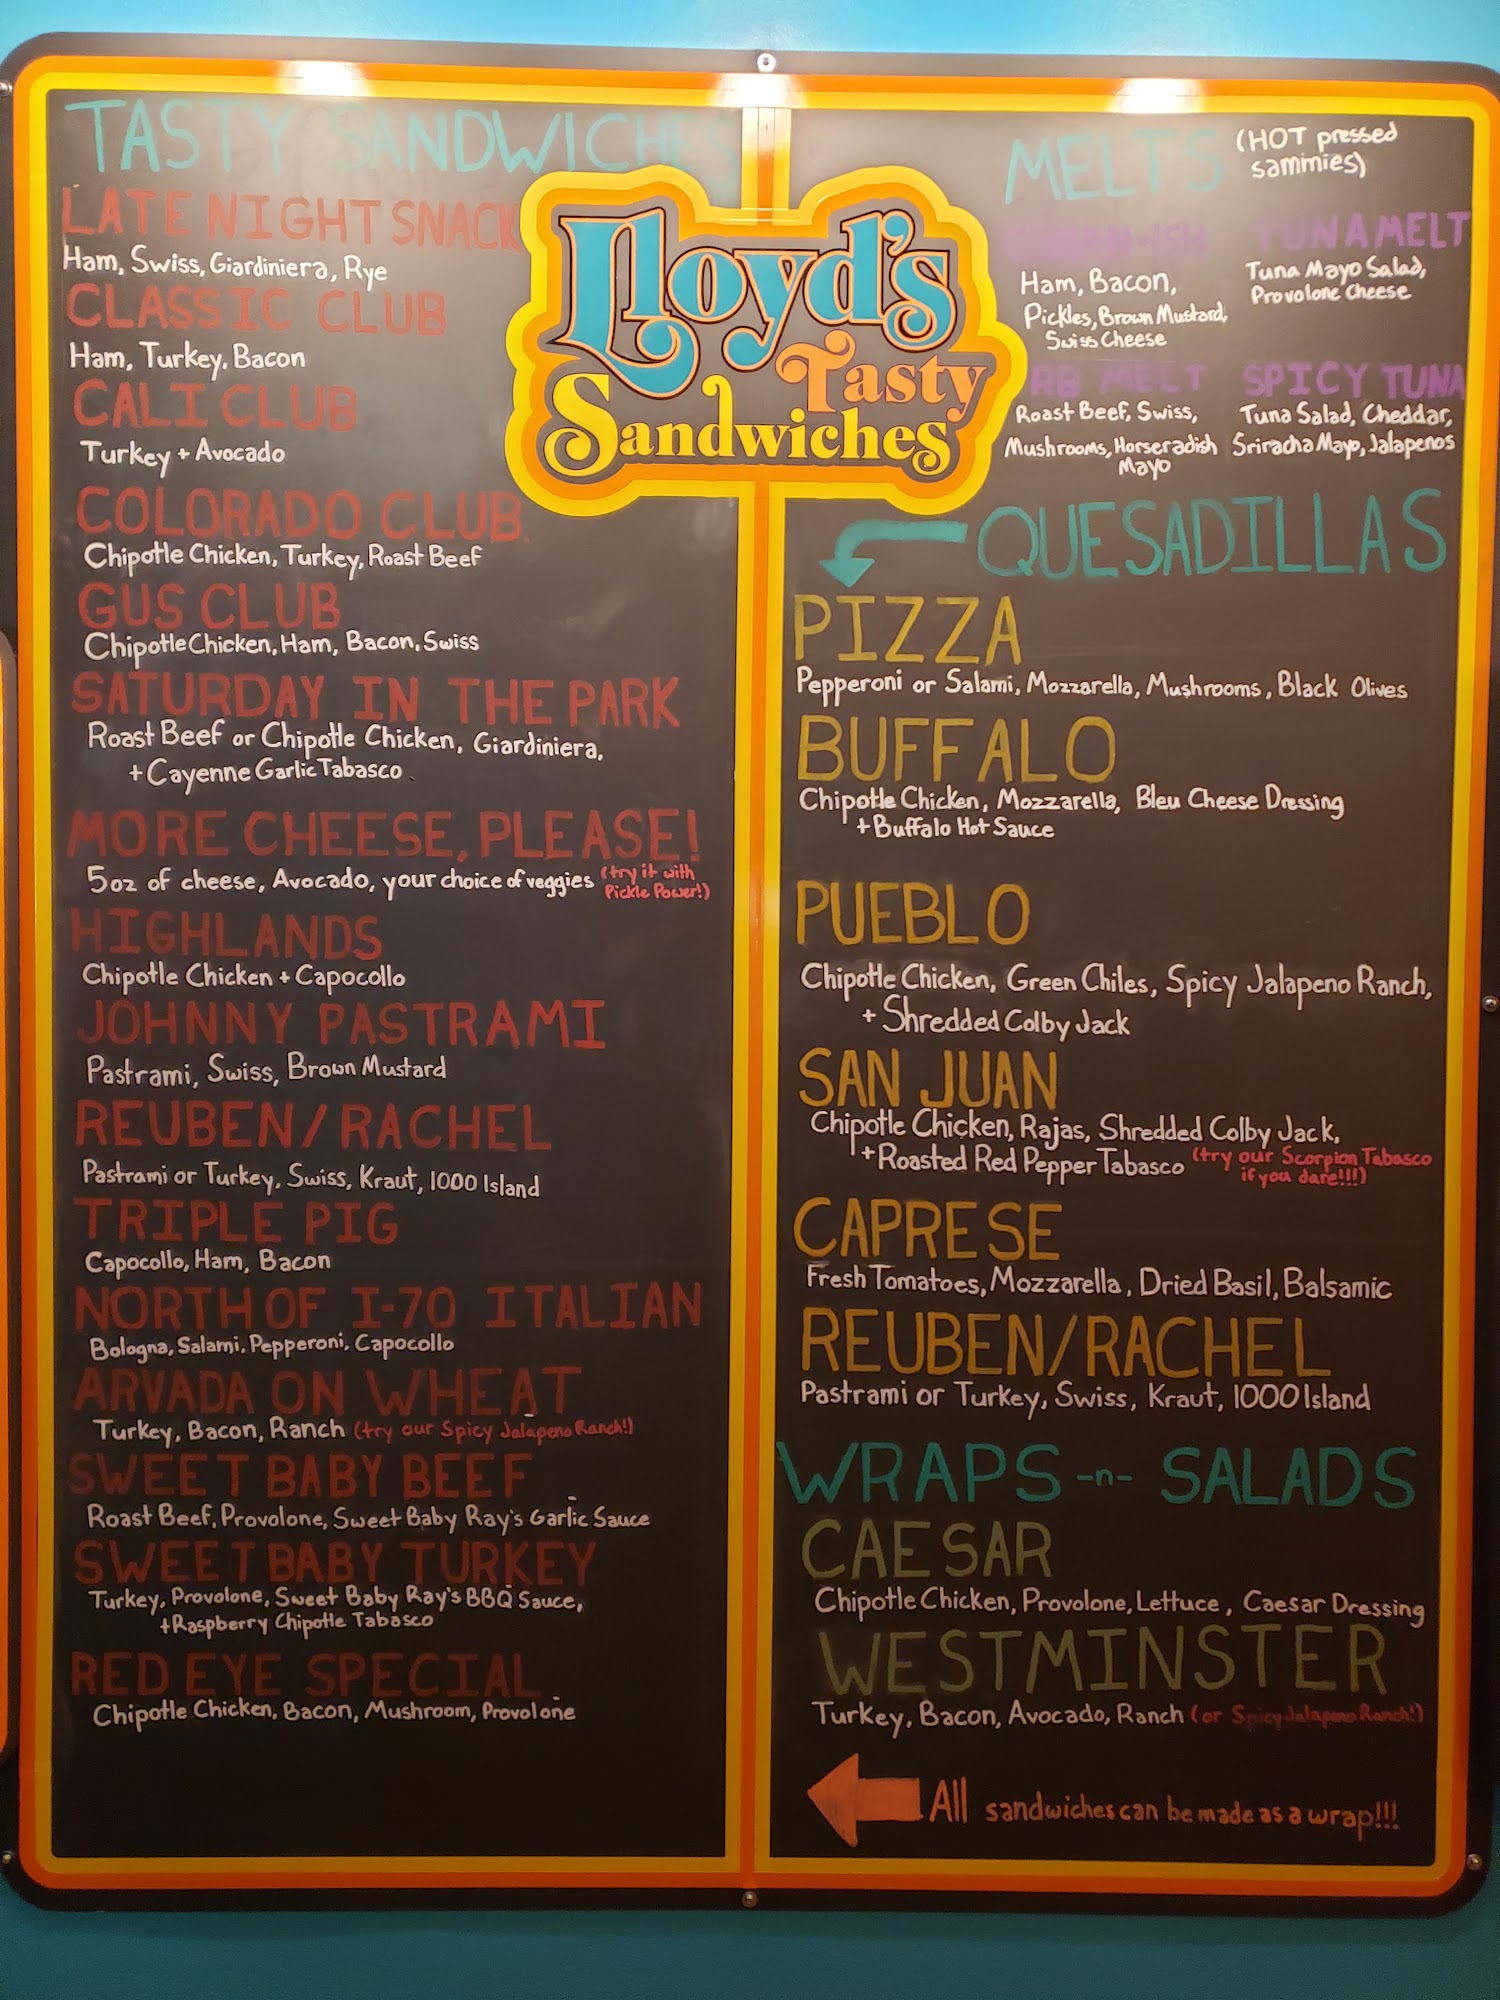 TASTY SANDWICHES
LATE NIGHT SNACK
Ham, Swiss, Giardiniera, Rye
CLASSIC CLUB
Ham, Turkey, Bacon
CALI CLUB
Turkey + Avocado
COLORADO CLUB
Chipotle Chicken, Turkey, Roast Beef
GUS CLUB
Chipotle Chicken, Ham, Bacon, Swiss
SATURDAY IN THE PARK
Roast Beef or Chipotle Chicken, Giardiniera,
+ Cayenne Garlic Tabasco
MORE CHEESE, PLEASE!
5oz of cheese, Avocado, your choice of veggies (try it with
Pickle Power!)
HIGHLANDS
Chipotle Chicken + Capocollo
JOHNNY PASTRAMI
Pastrami, Swiss, Brown Mustard
REUBEN/RACHEL
Pastrami or Turkey, Swiss, Kraut, 1000 Island
TRIPLE PIG
Capocollo, Ham, Bacon
NORTH OF I-70 ITALIAN
Bologna, Salami, Pepperoni, Capocollo
ARVADA ON WHEAT
Turkey, Bacon, Ranch (try our Spicy Jalapeno Ranch!)
SWEET BABY BEEF
Roast Beef, Provolone, Sweet Baby Ray's Garlic Sauce
SWEET BABY TURKEY
Turkey, Provolone, Sweet Baby Ray's BBQ Sauce,
+Raspberry Chipotle Tabasco
RED EYE SPECIAL
Chipotle Chicken, Bacon, Mushroom, Provolone
Lloyd's
Tasty
Sandwiches
MELTS (HOT pressed
sammies)
Ham, Bacon,
Pickles, Brown Mustard,
Swiss Cheese
TUNA MELT
Tuna Mayo Salad,
Provolone Cheese
RB MELT
Roast Beef, Swiss,
Mushrooms, Horseradish
Mayo
SPICY TUNA
Tuna Salad, Cheddar,
Sriracha Mayo, Jalapenos
QUESADILLAS
PIZZA
Pepperoni or Salami, Mozzarella, Mushrooms, Black Olives
BUFFALO
Chipotle Chicken, Mozzarella, Bleu Cheese Dressing
+Buffalo Hot Sauce
PUEBLO
Chipotle Chicken, Green Chiles, Spicy Jalapeno Ranch,
+ Shredded Colby Jack
SAN JUAN
Chipotle Chicken, Rajas, Shredded Colby Jack,
+Roasted Red Pepper Tabasco (try our Scorpion Tabasco
if you dare!!!)
CAPRESE
Fresh Tomatoes, Mozzarella, Dried Basil, Balsamic
REUBEN/RACHEL
Pastrami or Turkey, Swiss, Kraut, 1000 Island
WRAPS -n- SALADS
CAESAR
Chipotle Chicken, Provolone, Lettuce, Caesar Dressing
WESTMINSTER
Turkey, Bacon, Avocado, Ranch (or Spicy Jalapeno Ranch!)
All sandwiches can be made as a wrap!!!